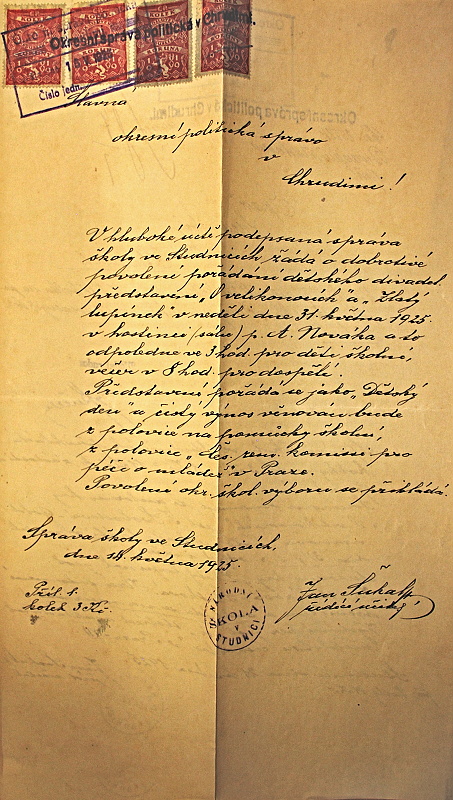 KOLEK KOLEK KOLEK KOLEK
Okresní správa politická v Chrudimi.
Číslo jedn.
Slavná
okresní politická správo
v
Chrudimi!
V hluboké úctě podepsaná správa
školy ve Studnicích žádá o dobrotivé
povolení pořádání dětského divadel.
představení „ velikonocích a „Zlatý
lupínek" v neděli dne 31. května 1925.
v hostinci (sále) p. A. Nováka a to
odpoledne ve 3 hod. pro děti školní,
večer v 8 hod. pro dospělé.
Představení pořádá se jako „Dětský
den" a čistý výnos věnován bude
z polovice na pomůcky školní,
z polovic „Čes. zem. komisi pro
péči o mládež" v Praze.
Povolení okr. škol. výboru se přikládá.
Správa školy ve Studnicích,
dne 14. května 1925.
Příl. 1.
kolek 3 Kč
NÁRODNÍ
ŠKOLA
V
STUDNICI
Jan
řídící učitel